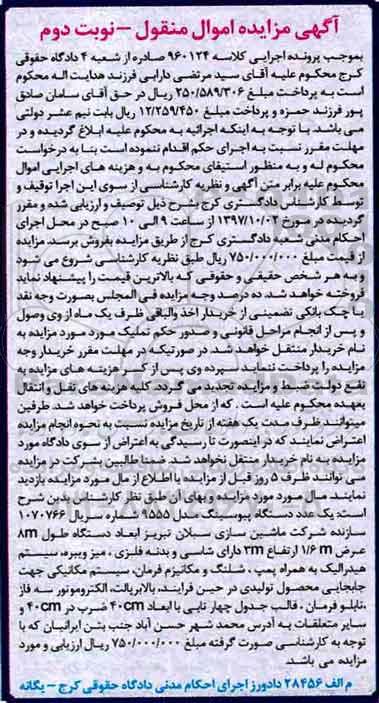 آگهی مزایده اموال منقول – نوبت دوم
بموجب پرونده اجرایی کلاسه ۹۶۰۱۲۴ صادره از شعبه ۴ دادگاه حقوقی
کرج محکوم علیه آقای سید مرتضی دارابی فرزند هدایت اله محکوم
است به پرداخت مبلغ ۲۵۰/۵۸۹/۳۰۶ ریال در حق آقای سامان صادق
پور فرزند حمزه و پرداخت مبلغ ۱۲/۲۵۹/۴۵۰ ریال بابت نیم عشر دولتی
می باشد. با توجه به اینکه اجرائیه به محکوم علیه ابلاغ گردیده و در
مهلت مقرر نسبت به اجرای حکم اقدام ننموده است بنا به درخواست
محکوم له و به منظور استیفای محکوم به و هزینه های اجرایی اموال
محکوم علیه برابر متن آگهی و نظریه کارشناسی از سوی این اجرا توقیف و
توسط کارشناس دادگستری کرج بشرح ذیل توصیف و ارزیابی شده و مقرر
گردیده در مورخ ۱۳۹۷/۱۰/۰۲ از ساعت ۹ الی ۱۰ صبح در محل اجرای
احکام مدنی شعبه دادگستری کرج از طریق مزایده بفروش برسد. مزایده
از قیمت مبلغ ۷۵۰/۰۰۰/۰۰۰ ریال طبق نظریه کارشناسی شروع می شود
و به هر شخص حقیقی و حقوقی که بالاترین قیمت را پیشنهاد نماید
فروخته خواهد شد. ده درصد وجه مزایده فی المجلس بصورت وجه نقد
یا چک بانکی تضمینی از خریدار اخذ والباقی ظرف یک ماه از وی وصول
و پس از انجام مراحل قانونی و صدور حکم تملیک مورد مورد مزایده به
نام خریدار منتقل خواهد شد. در صورتیکه در مهلت مقرر خریدار وجه
مزایده را پرداخت ننماید سپرده وی پس از کسر هزینه های مزایده به
نفع دولت ضبط و مزایده تجدید می گردد. کلیه هزینه های نقل و انتقال
بعهده محکوم علیه است ، که از محل فروش پرداخت خواهد شد. طرفین
میتوانند ظرف مدت یک هفته از تاریخ مزایده نسبت به نحوه انجام مزایده
اعتراض نمایند که در اینصورت تا رسیدگی به اعتراض از سوی دادگاه مورد
مزایده به نام خریدار منتقل نخواهد شد. ضمنا طالبین به شرکت در مزایده
می توانند ظرف ۵ روز قبل از مزایده با اطلاع از مال مورد مزایده بازدید
نمایند. مال مورد مورد مزایده و بهای آن طبق نظر کارشناس بدین شرح
است: یک عدد دستگاه پیوسنگ مدل ۹۵۵۵ شماره سریال ۱۰۷۰۷۶۶
سازنده شرکت ماشین سازی سبلان تبریز ابعاد دستگاه طول ۸m
عرض ۱/۶ m ارتفاع ۳m دارای شاسی و بدنه فلزی ، میز ویبره، سیستم
هیدرالیک به همراه پمپ ، شلنگ و مکانیزم فرمان، سیستم مکانیکی جهت
جابجایی محصول تولیدی در حین فرایند، بالابربالت، الکتروموتور سه فاز
،تابلو فرمان ، قالب جدول چهار تایی با ابعاد ۴۰cm ضرب در ۴۰cm و
سایر متعلقات به آدرس محمد شهر حسن آباد جنب بتن ایرانیان که با
توجه به کارشناسی صورت گرفته مبلغ ۷۵۰/۰۰۰/۰۰۰ ریال ارزیابی و مورد
مزایده می باشد.
م الف ۲۸۴۵۶ دادورز اجرای احکام مدنی دادگاه حقوقی کرج – یگانه